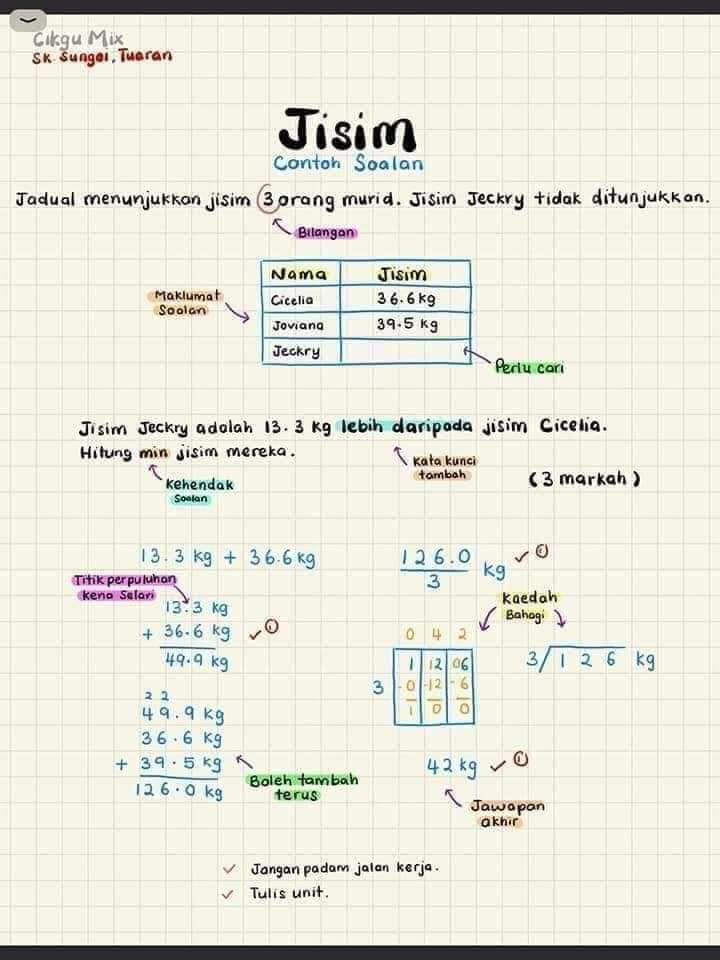 Cikgu Mix
SK Sungai, Tuaran
Jisim
Contoh Soalan
Jadual menunjukkan jisim 3 orang murid. Jisim Jeckry tidak ditunjukkan.
Bilangan
Maklumat
Soalan
Nama Jisim
Cicelia 36.6 kg
Joviana 39.5 kg
Jeckry
Perlu cari
Jisim Jeckry adalah 13.3 kg lebih daripada jisim Cicelia.
Hitung min jisim mereka.
Kata kunci
tambah
(3 markah)
Kehendak
Soalan
13.3 kg + 36.6 kg
Titik perpuluhan
kena selari
13.3 kg
+ 36.6 kg ✓ 1
49.9 kg
2 2
49.9 kg
36.6 kg
+ 39.5 kg
126.0 kg
Boleh tambah
terus
126.0 kg ✓ 1
3
Kaedah
Bahagi
0 4 2
1 12 06
3 -0 -12 -6
1 0 0
3/126 kg
42 kg ✓ 1
Jawapan
akhir
✓ Jangan padam jalan kerja.
✓ Tulis unit.